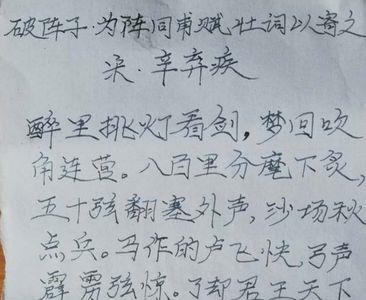 破阵子·为陈同甫赋壮词以寄之
宋·辛弃疾
醉里挑灯看剑，梦回吹
角连营。八百里分麾下炙，
五十弦翻塞外声，沙场秋
点兵。马作的卢飞快，弓声
霹雳弦惊。了却君王天下